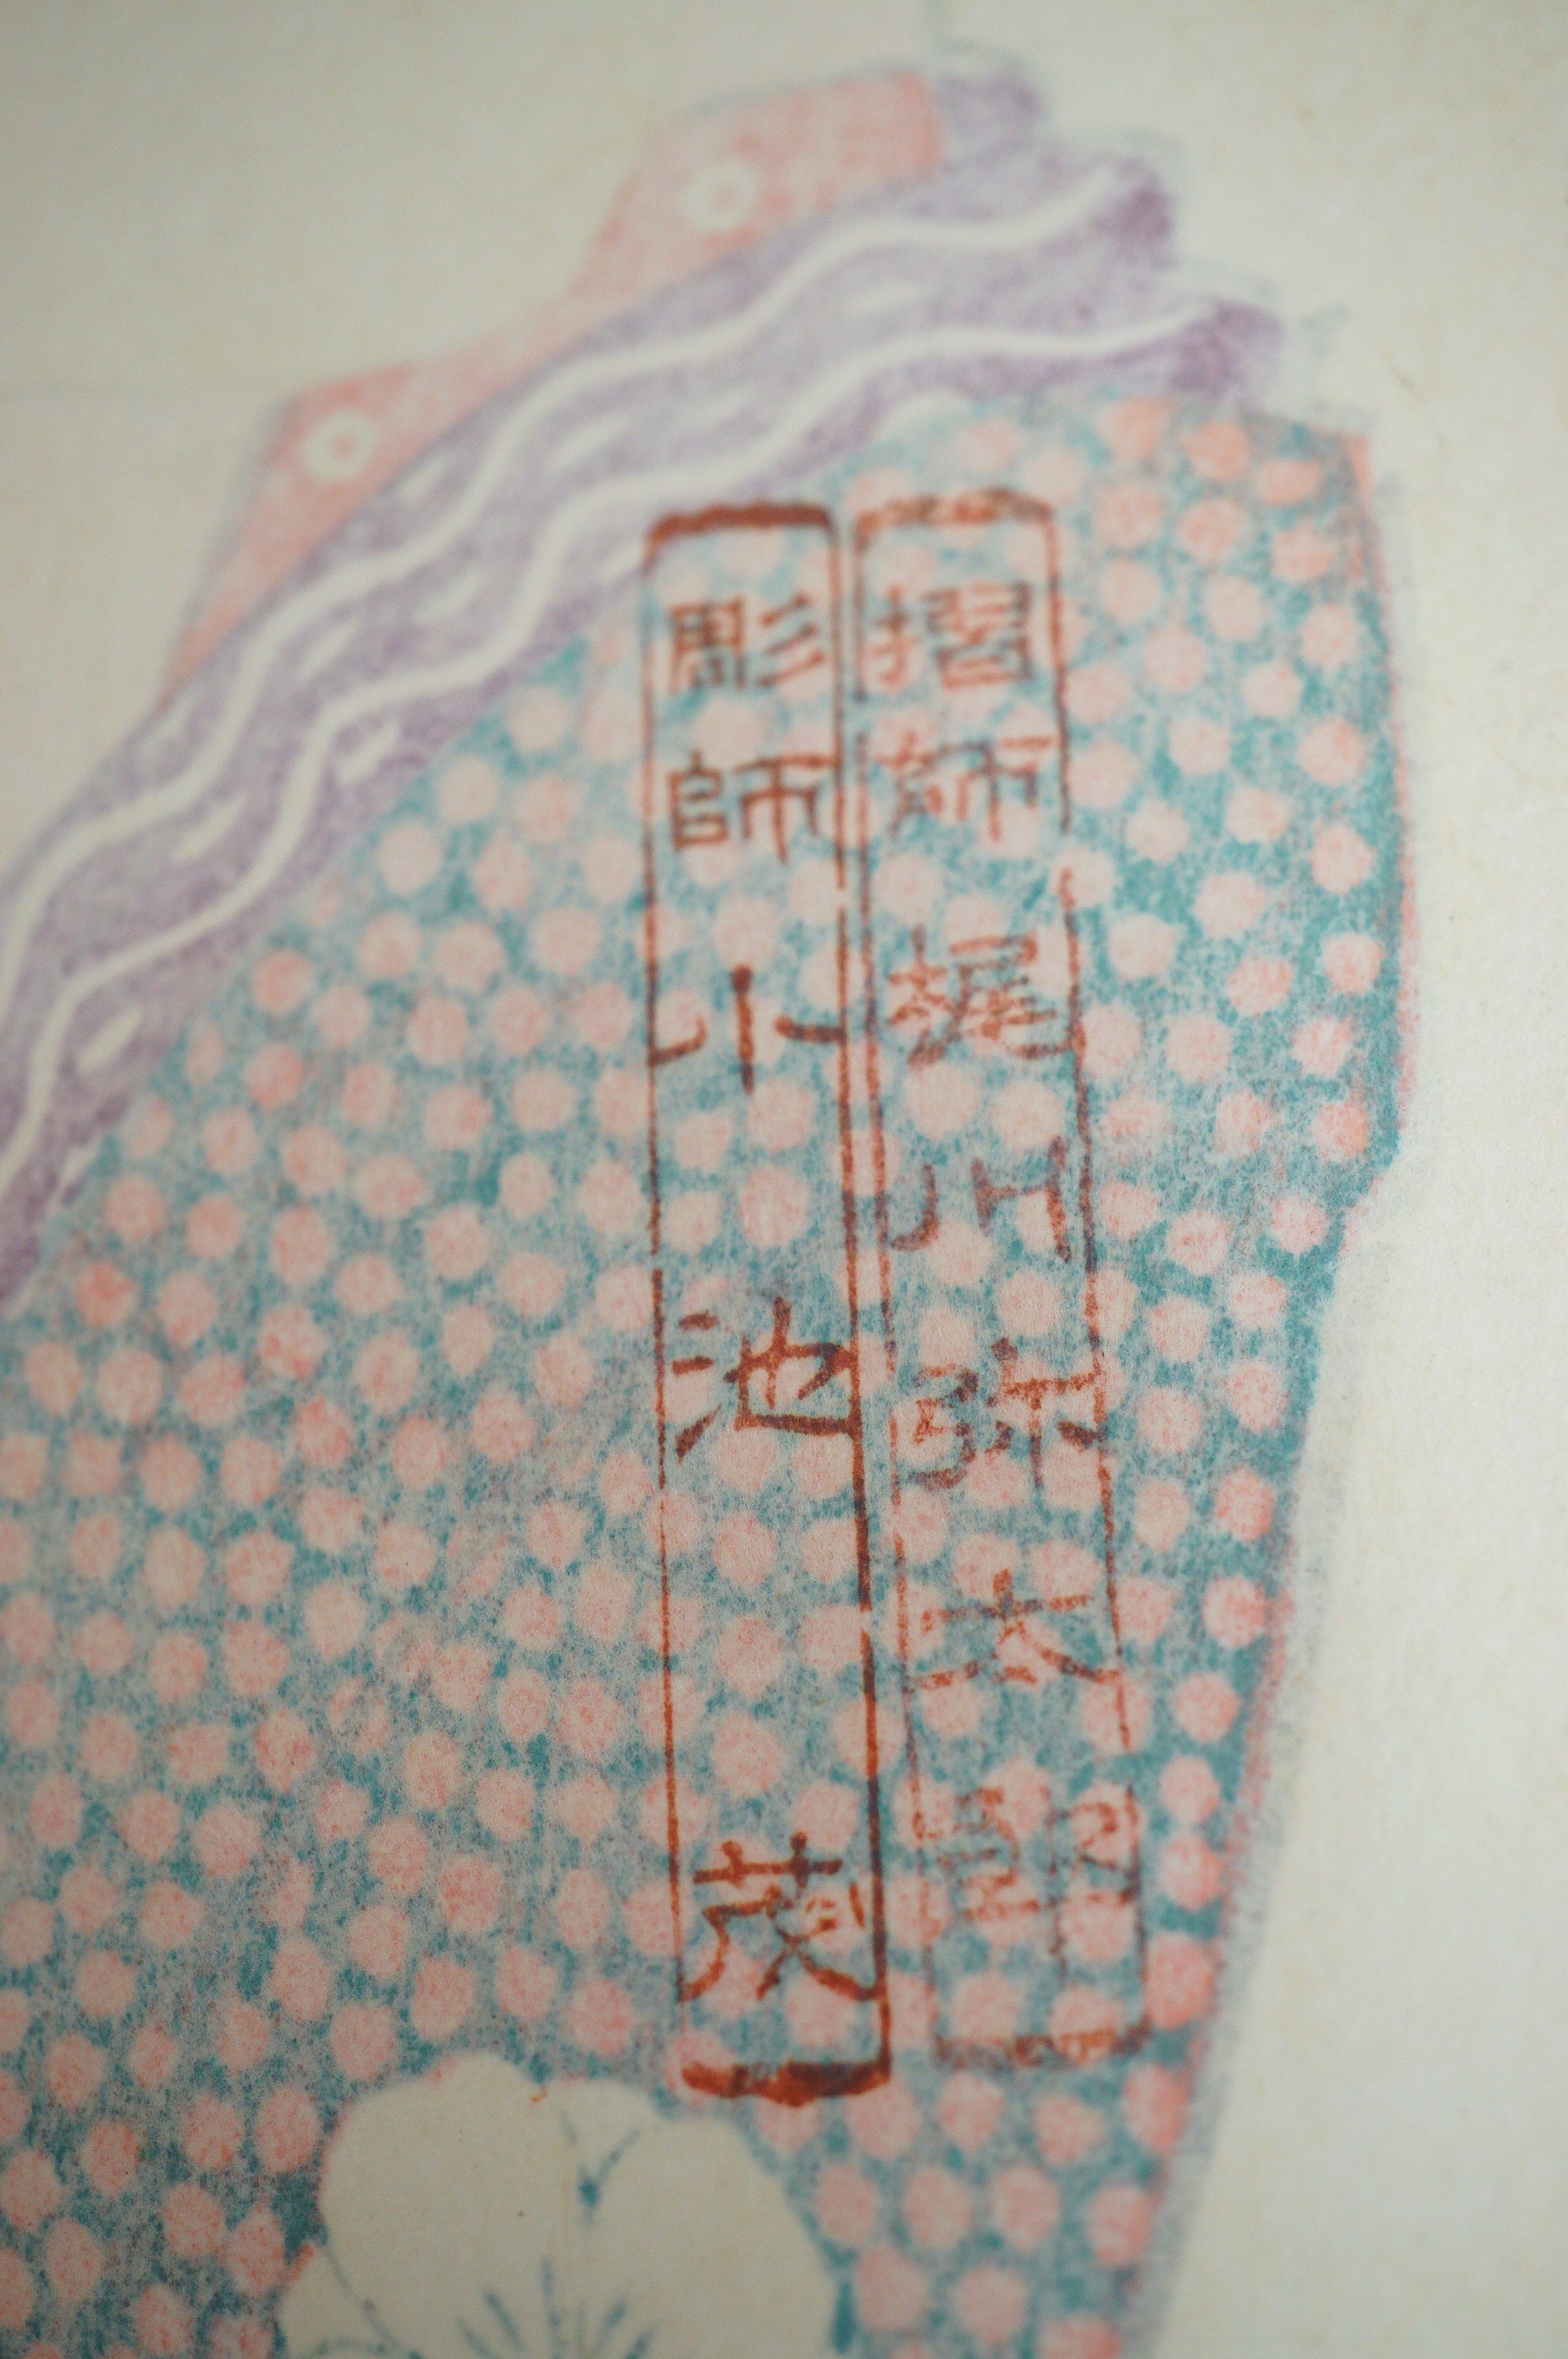 摺師梶川弥太郎
彫師小池茂